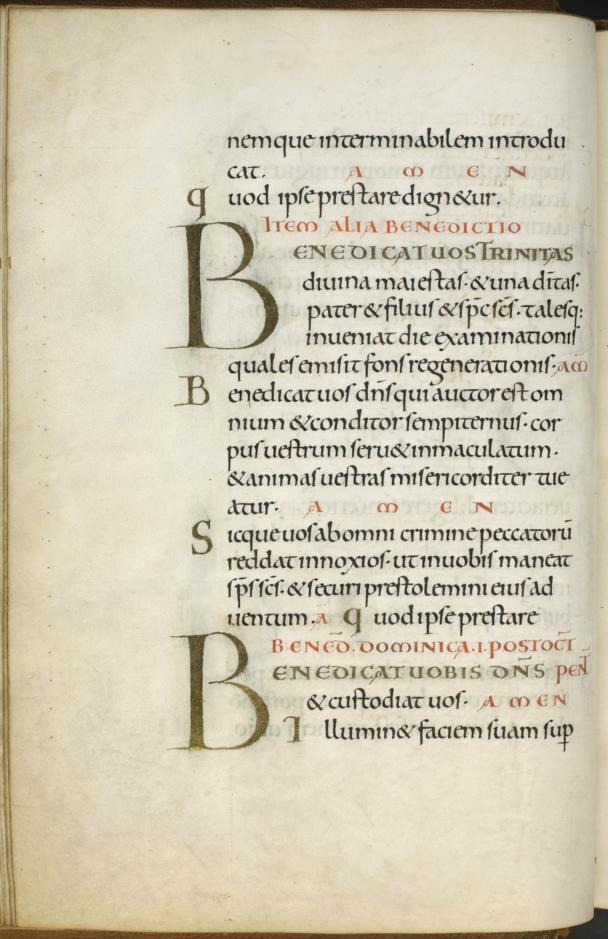 nemque interminabilem introdu
cat. A M E N
Quod ipse prestare dign&ur.
ITEM ALIA BENEDICTIO
BENEDICAT UOS TRINITAS
diuina maiestas· & una dītas·
pater & filius & sp̄c sc̄s· talesq:
inueniat die examinationis
quales emisit fons regenerationis· AM̄
Benedicat uos dn̄s qui auctor est om
nium & conditor sempiternus· cor
pus uestrum seru& inmaculatum·
& animas uestras misericorditer tue
atur· A M E N
Sicque uos ab omni crimine peccatorū
reddat innoxios· ut in uobis maneat
sp̄s sc̄s· & securi prestolemini eius ad
uentum· A Quod ipse prestare
BENED̄. DOMINICA. I. POST OCT̄
BENEDICAT UOBIS DN̄S PEN̄
& custodiat uos· A M E N
Illumin& faciem suam sup̄